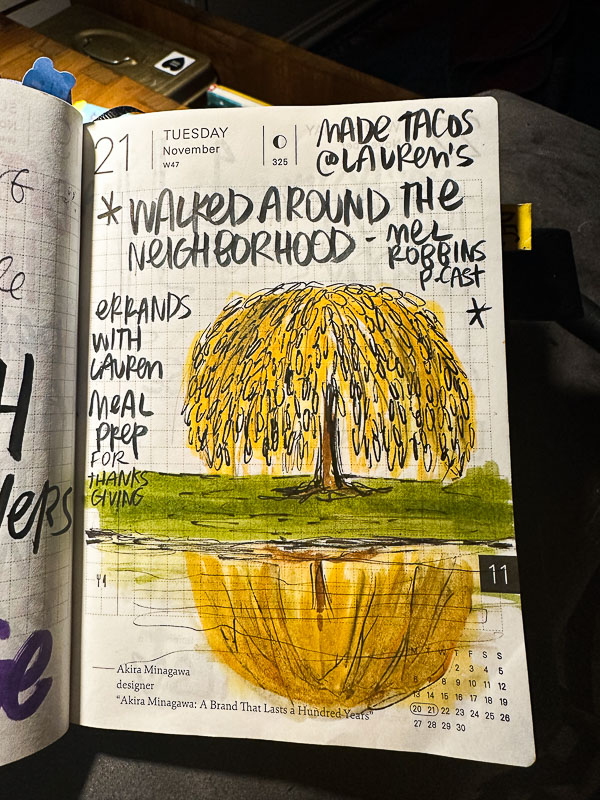 21
TUESDAY
November
W47
325
MADE TACOS
@LAUREN'S
* WALKED AROUND THE
NEIGHBORHOOD - MEL
ROBBINS
P.CAST
*
ERRANDS
WITH
LAUREN
MEAL
PREP
FOR
THANKS
GIVING
11
Akira Minagawa
designer
"Akira Minagawa: A Brand That Lasts a Hundred Years"
M T W T F S S
1 2 3 4 5
6 7 8 9 10 11 12
13 14 15 16 17 18 19
20 21 22 23 24 25 26
27 28 29 30